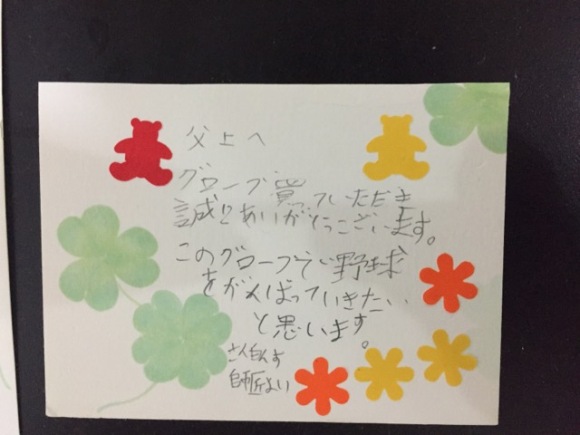 父上へ
グローブ買っていただき
誠にありがとうございます。
このグローブで野球
をがんばっていきたい
と思います。
師匠より